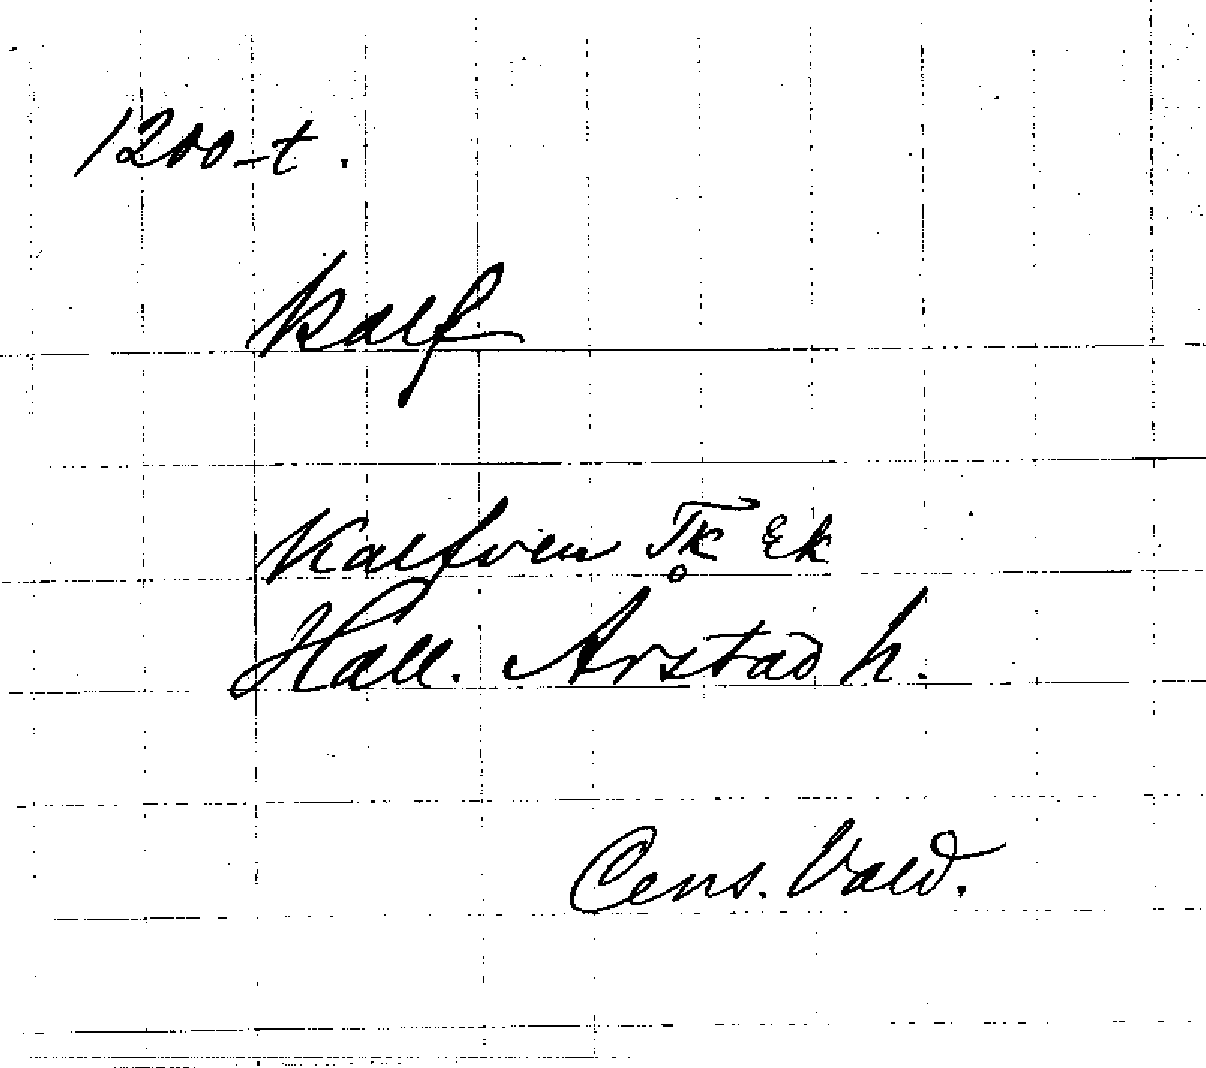 1200-t.
Kalf
Kalfven Tk Ek
Hall. Årstad h.
Cens. Vald.